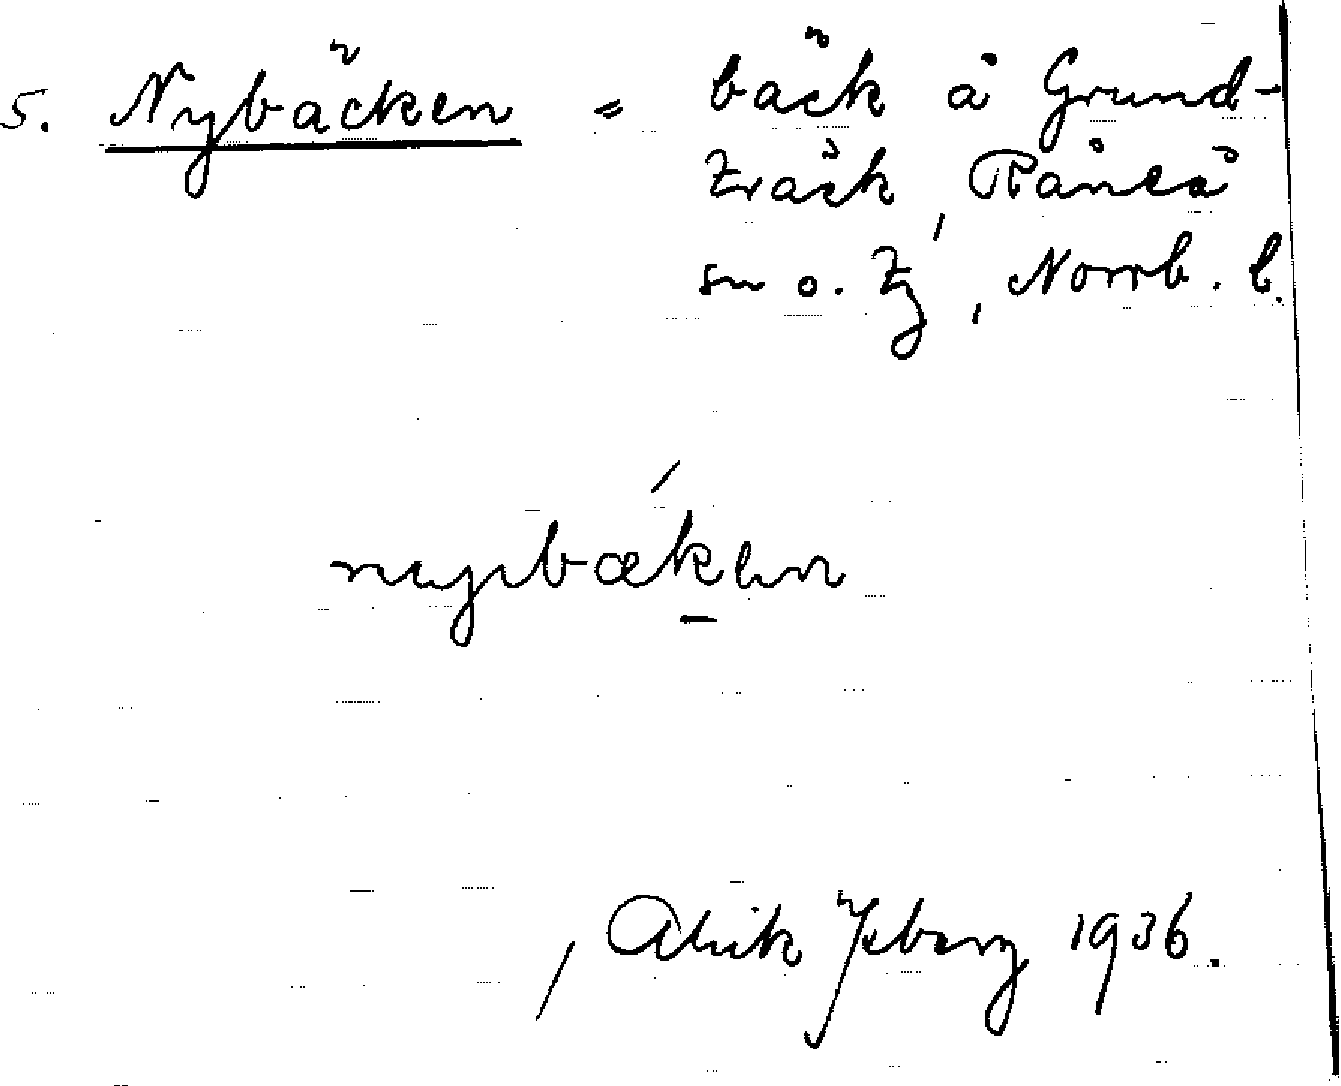 5. Nybäcken = bäck å Grund-
träsk, Råneå
sn o. tg, Norrb. l.
nybæken
Alrik Ysberg 1936.